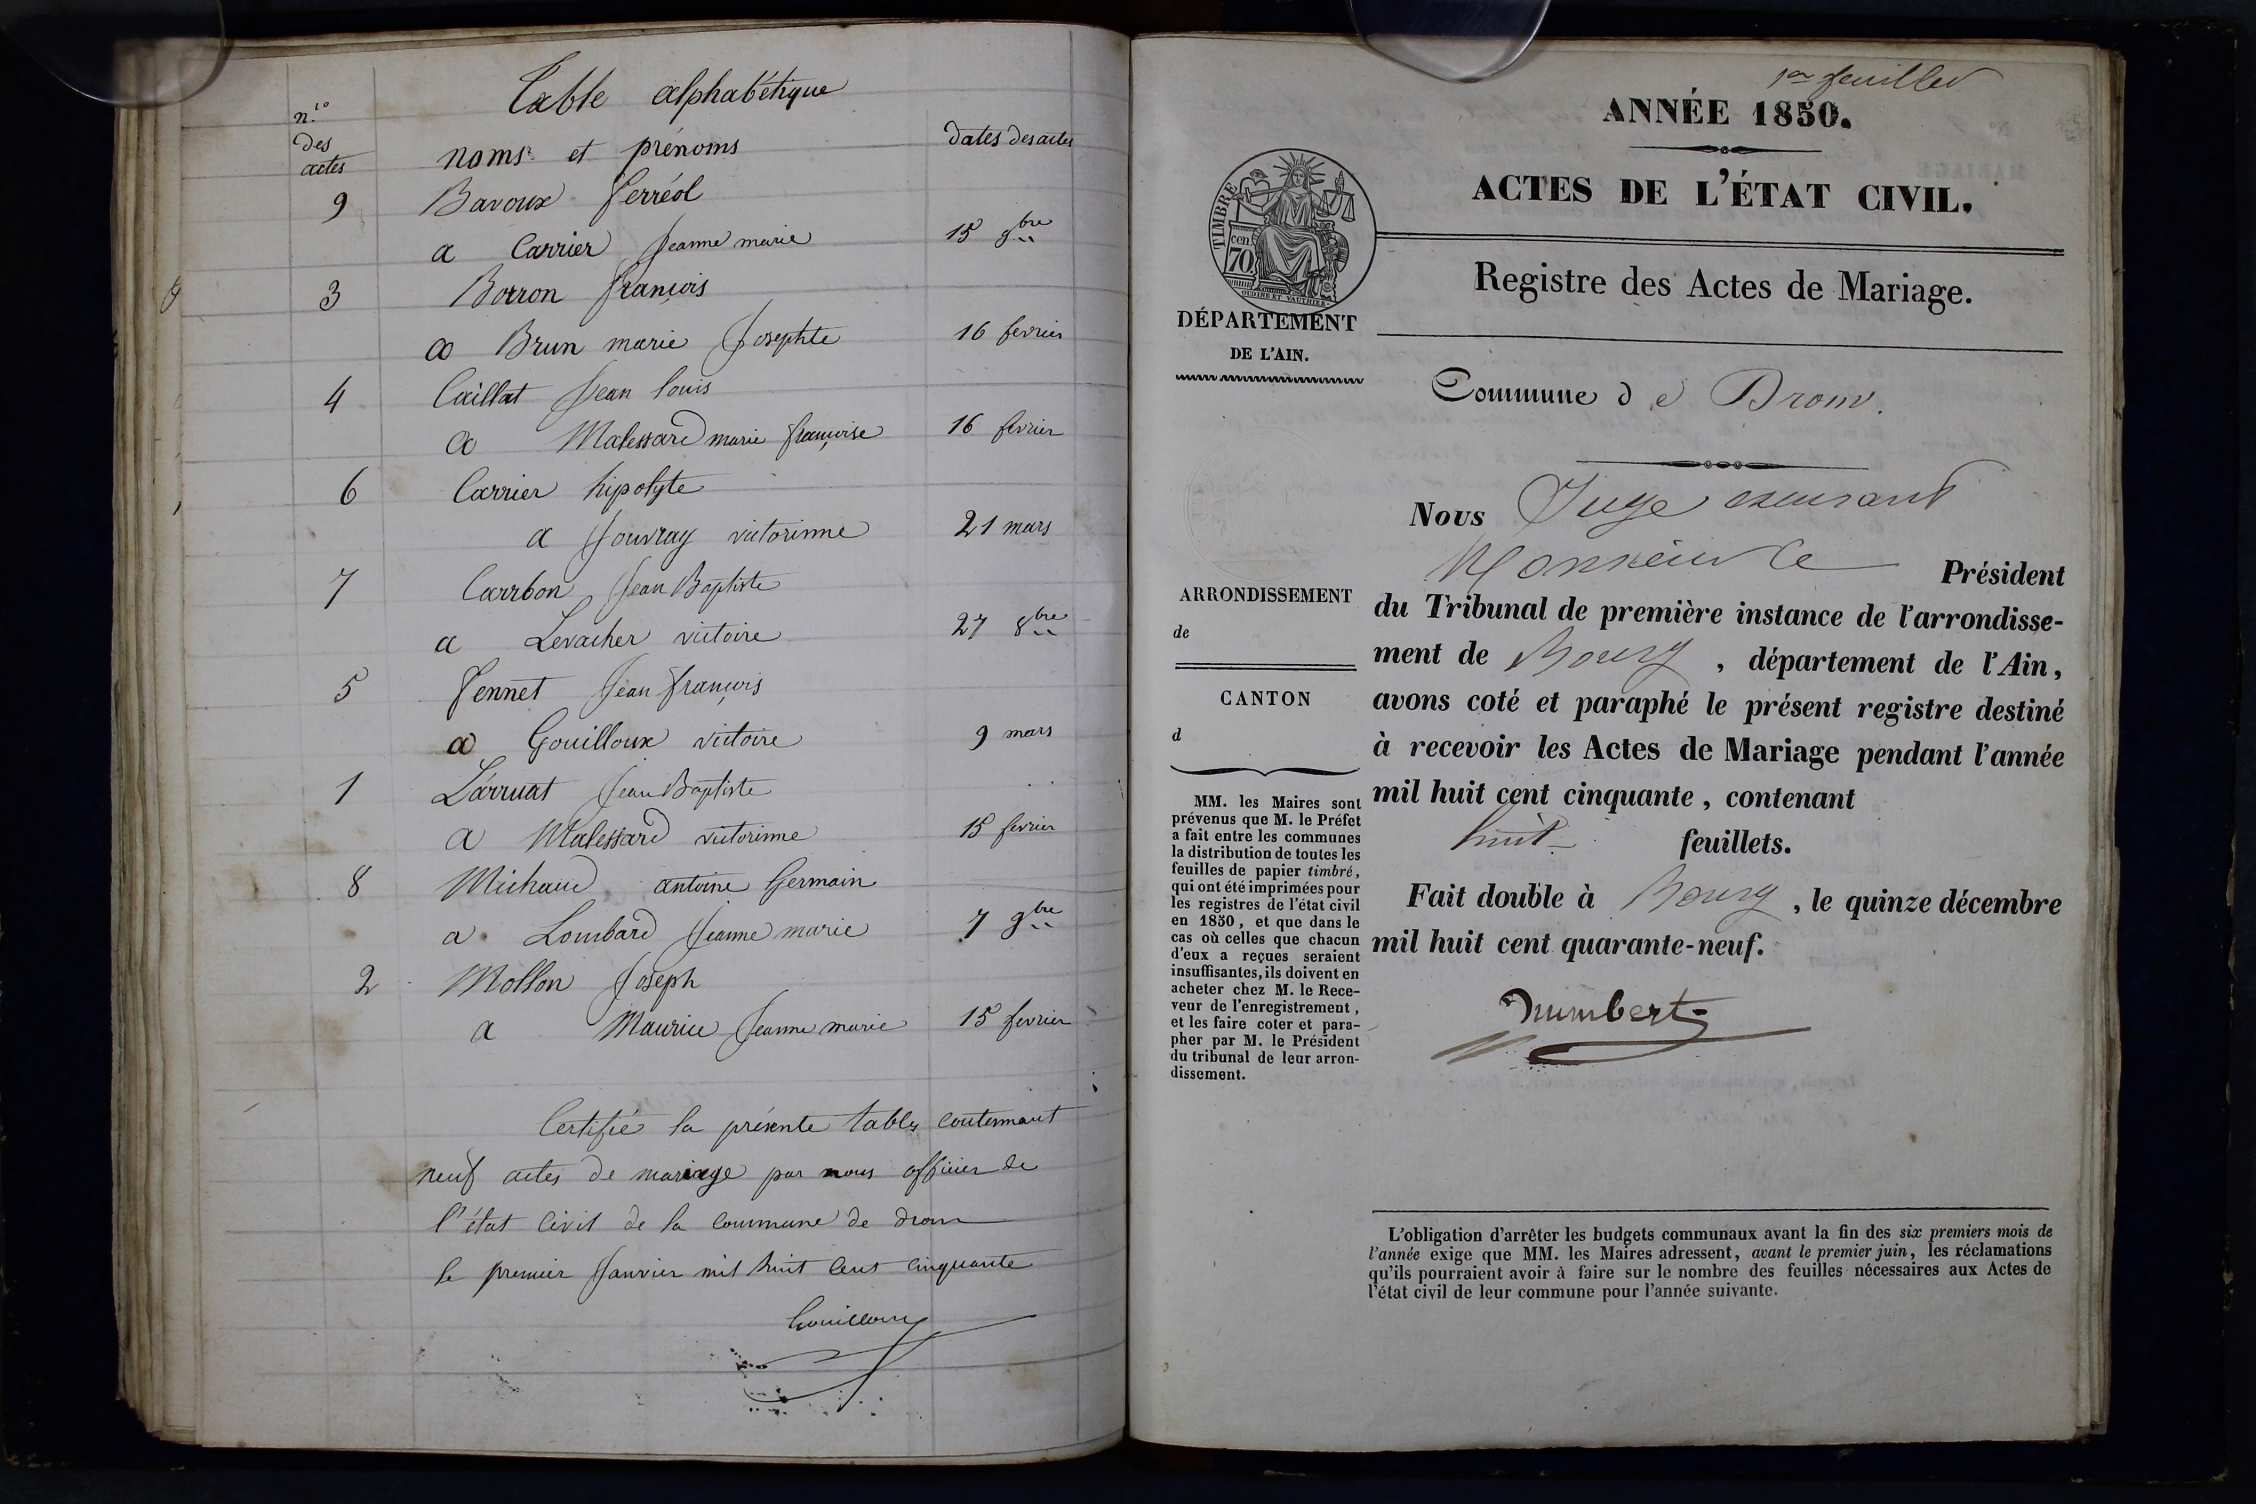 Table alphabétique
n.os
des
actes
noms et prénoms
dates des actes
9 Bavoux ferréol
a Carrier Jeanne marie 15 9bre
3 Borron françois
a Brun marie Josephte 16 fevrier
4 Caillat Jean louis
a Malessard marie françoise 16 fevrier
6 Carrier hipolyte
a Jouvray victorinne 21 mars
7 Carrbon Jean Baptiste
a Levacher victoire 27 8bre
5 Jennet Jean françois
a Gouilloux victoire 9 mars
1 Lárruat Jean Baptiste
a Malessard victorinne 15 fevrier
8 Michaud antoine Germain
a Lombard Jeanne marie 7 9bre
2 Mollon Joseph
a Maurice Jeanne marie 15 fevrier
Certifié la présente table contennant
neuf actes de mariage par nous officier de
l'état civil de la commune de drom
le premier Janvier mil huit cent cinquante
Gouilloux
1er feuillet
ANNÉE 1850.
ACTES DE L'ÉTAT CIVIL.
Registre des Actes de Mariage.
TIMBRE
70 cen
OUDINÉ ET VAUTHIER
DÉPARTEMENT
DE L'AIN.
Commune de Drom.
Nous Juge
Monsieur le Président
du Tribunal de première instance de l'arrondisse-
ment de Bourg, département de l'Ain,
avons coté et paraphé le présent registre destiné
à recevoir les Actes de Mariage pendant l'année
mil huit cent cinquante, contenant
huit feuillets.
Fait double à Bourg, le quinze décembre
mil huit cent quarante-neuf.
ARRONDISSEMENT
de
CANTON
d
MM. les Maires sont
prévenus que M. le Préfet
a fait entre les communes
la distribution de toutes les
feuilles de papier timbré,
qui ont été imprimées pour
les registres de l'état civil
en 1850, et que dans le
cas où celles que chacun
d'eux a reçues seraient
insuffisantes, ils doivent en
acheter chez M. le Rece-
veur de l'enregistrement,
et les faire coter et para-
pher par M. le Président
du tribunal de leur arron-
dissement.
L'obligation d'arrêter les budgets communaux avant la fin des six premiers mois de
l'année exige que MM. les Maires adressent, avant le premier juin, les réclamations
qu'ils pourraient avoir à faire sur le nombre des feuilles nécessaires aux Actes de
l'état civil de leur commune pour l'année suivante.